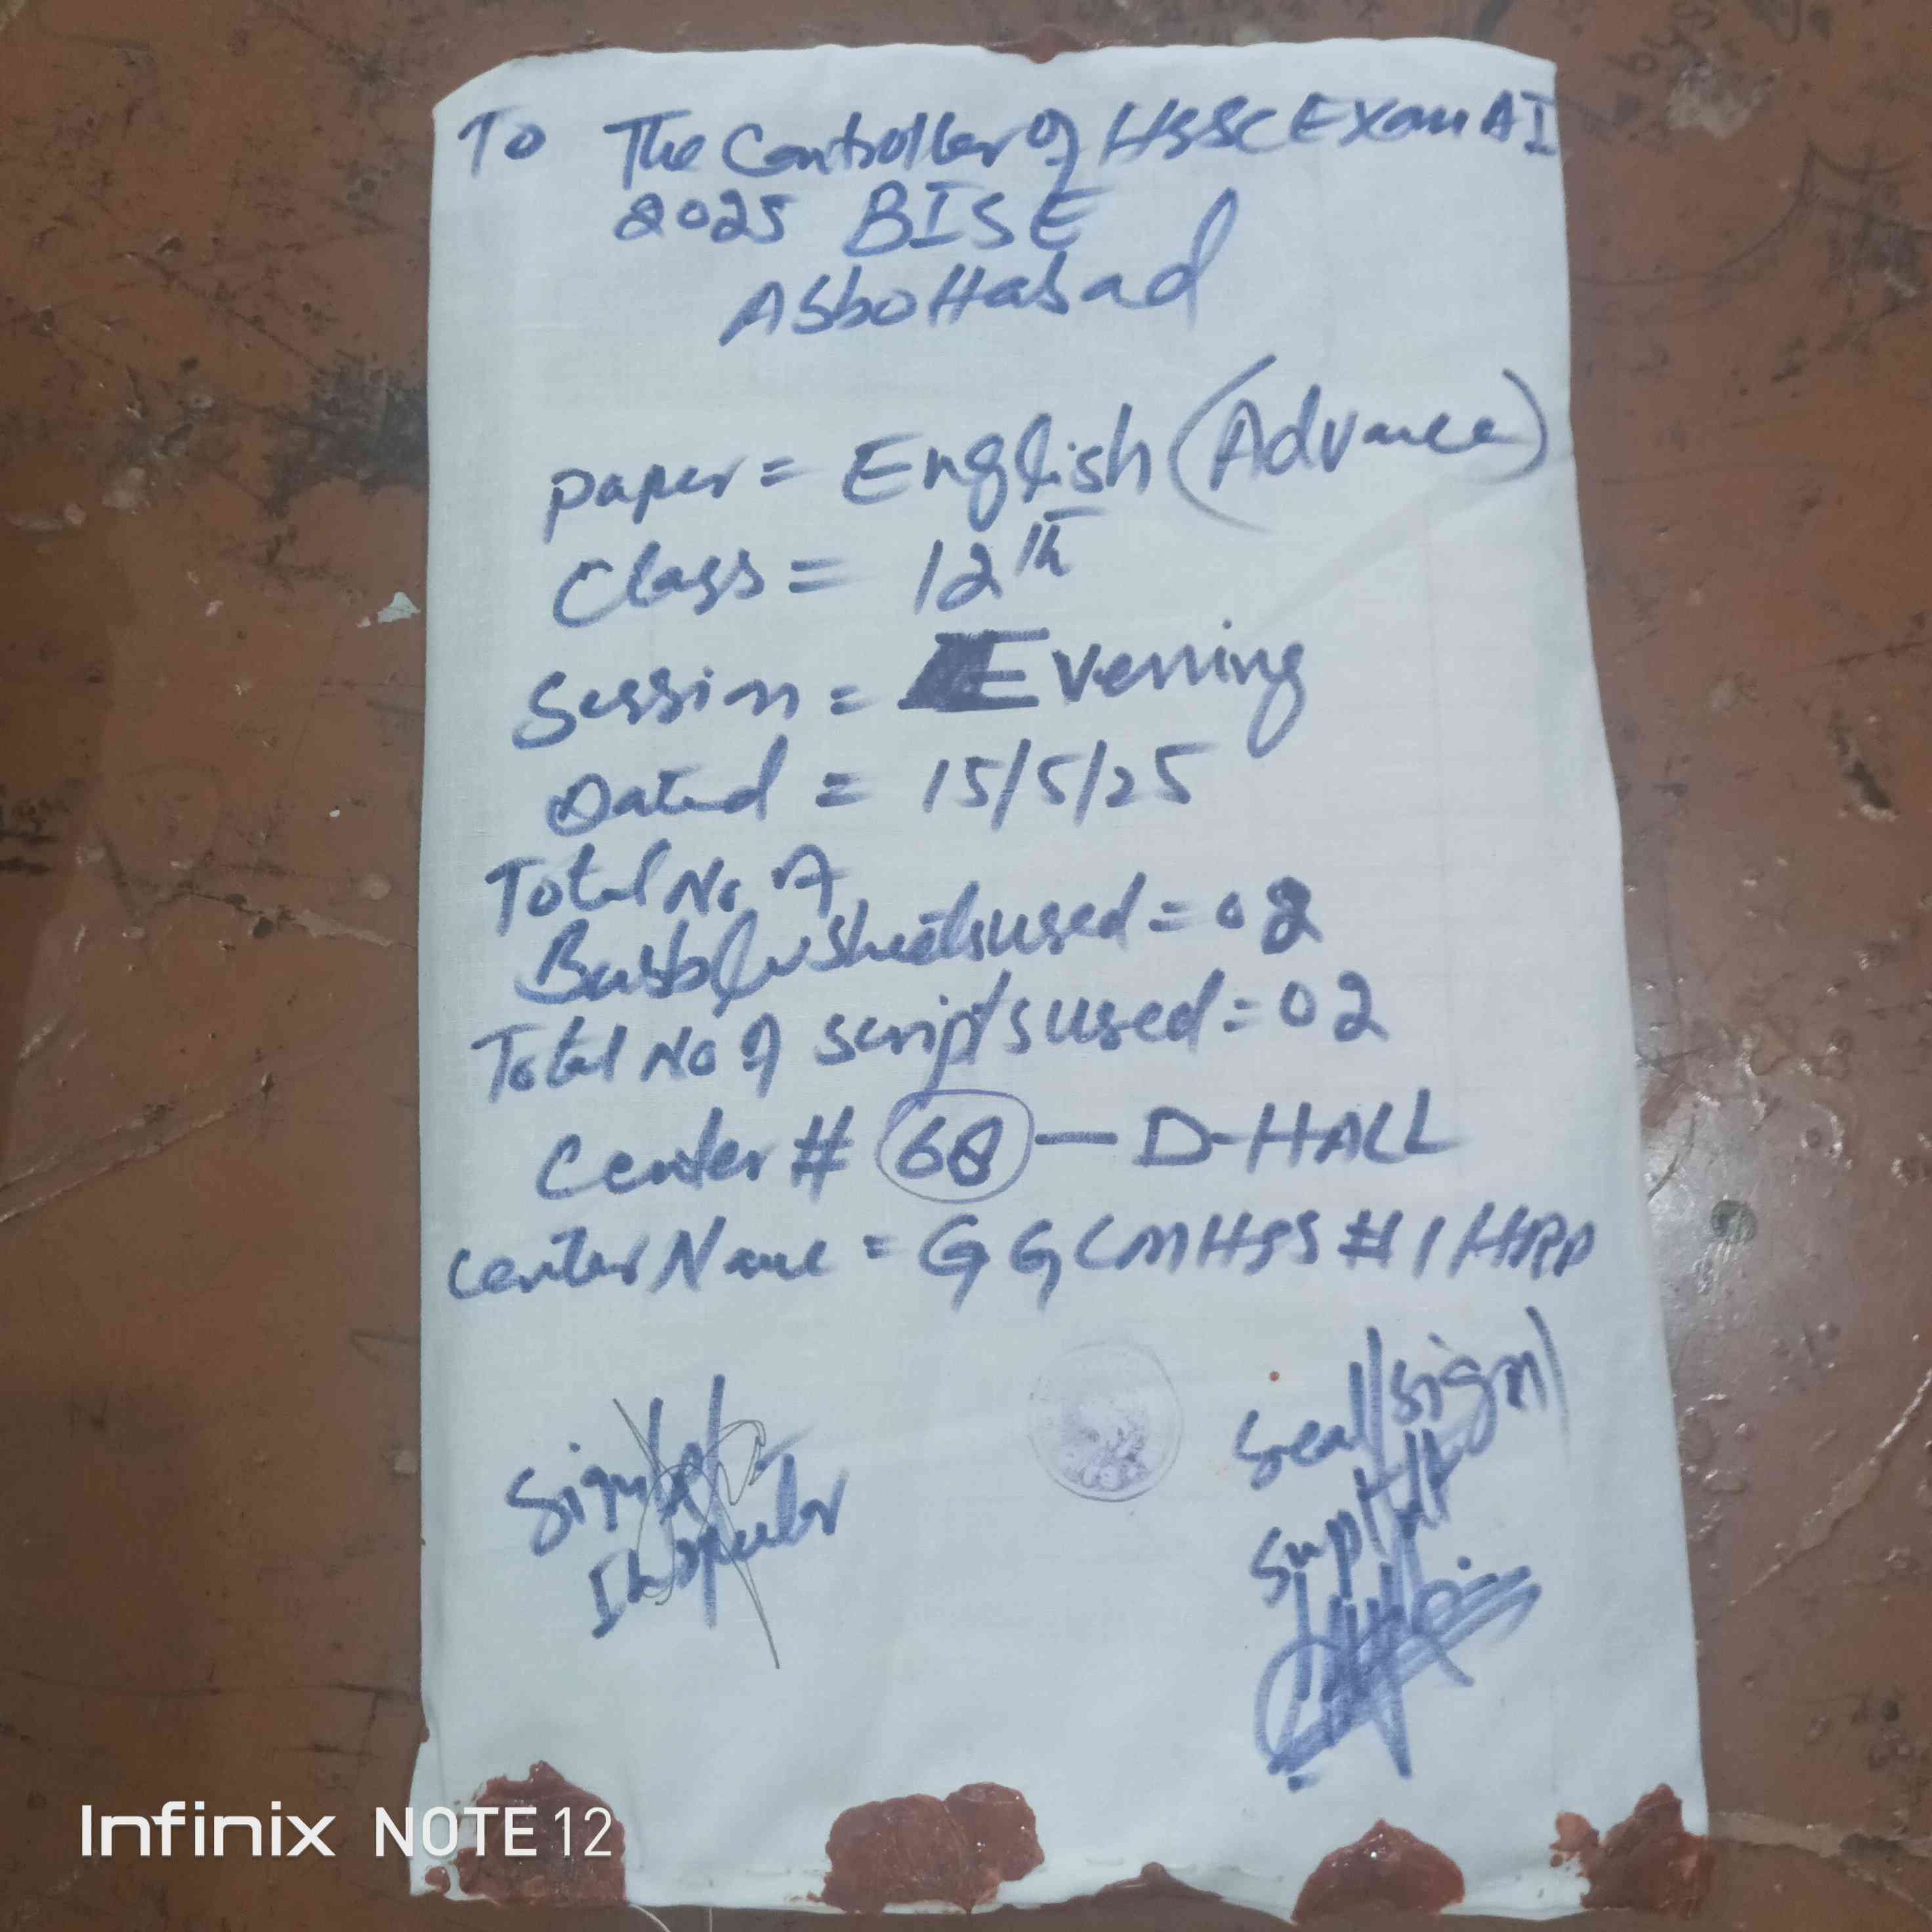 To The Controller of HSSC Exam AI
2025 BISE
Abbottabad
paper = English (Advance)
Class = 12th
Session = Evening
Dated = 15/5/25
Total No of
Bubble sheets used = 02
Total No of scripts used = 02
Center # 68 — D-HALL
Center Name = GGCMHSS #1 HRP
Sign of
Inspector
Seal/sign
Suptdt
Infinix NOTE 12